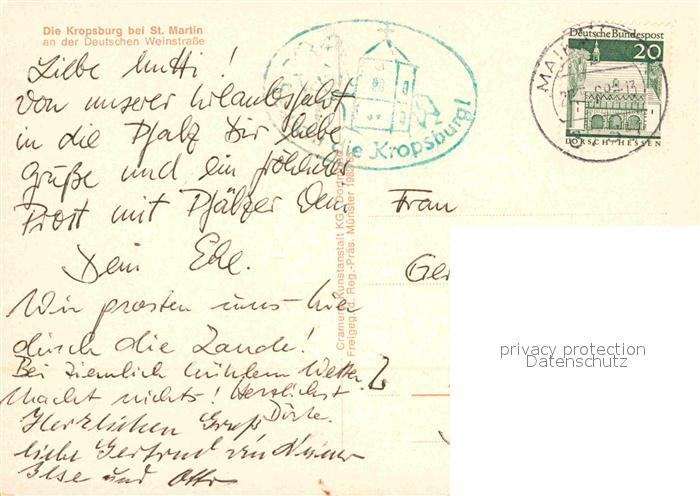 Die Kropsburg bei St. Martin
an der Deutschen Weinstraße
Liebe Mutti!
Von unserer Urlaubsfahrt
in die Pfalz Dir liebe
Grüße und ein fröhliches
Prost mit Pfälzer Wein
Dein Ede.
Wir prosten uns hier
durch die Lande!
Bei ziemlich kühlem Wetter.
Macht nichts! Herzlichst
Dörte.
Herzlichen Gruß
liebe Gertrud von Deiner
Ilse und Otto
Cramers Kunstanstalt KG, Dortmund
Freigeg. d. Reg.-Präs. Münster
die Kropsburg!
Deutsche Bundespost
20
LORSCH/HESSEN
MAI
Frau
Ger
privacy protection
Datenschutz